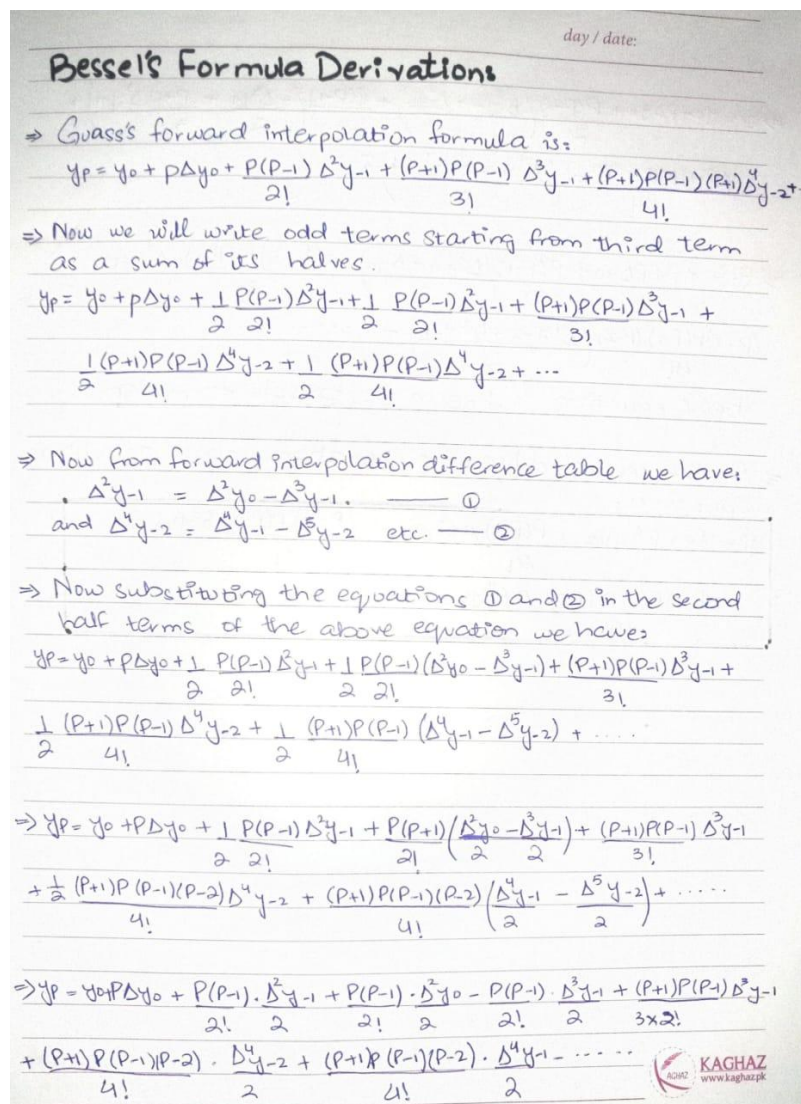 day / date:
Bessel's Formula Derivations
⇒ Guass's forward interpolation formula is:
yp = y₀ + pΔy₀ + P(P-1)/2! Δ²y₋₁ + (P+1)P(P-1)/3! Δ³y₋₁ + (P+1)P(P-1)(P+1)/4! Δ⁴y₋₂ +
⇒ Now we will write odd terms starting from third term
as a sum of its halves.
yp = y₀ + pΔy₀ + 1/2 P(P-1)/2! Δ²y₋₁ + 1/2 P(P-1)/2! Δ²y₋₁ + (P+1)P(P-1)/3! Δ³y₋₁ +
1/2 (P+1)P(P-1)/4! Δ⁴y₋₂ + 1/2 (P+1)P(P-1)/4! Δ⁴y₋₂ + ...
⇒ Now from forward interpolation difference table we have:
. Δ²y₋₁ = Δ²y₀ - Δ³y₋₁. —— ①
and Δ⁴y₋₂ = Δ⁴y₋₁ - Δ⁵y₋₂ etc. —— ②
⇒ Now substituting the equations ① and ② in the second
half terms of the above equation we have:
yp = y₀ + pΔy₀ + 1/2 P(P-1)/2! Δ²y₋₁ + 1/2 P(P-1)/2! (Δ²y₀ - Δ³y₋₁) + (P+1)P(P-1)/3! Δ³y₋₁ +
1/2 (P+1)P(P-1)/4! Δ⁴y₋₂ + 1/2 (P+1)P(P-1)/4! (Δ⁴y₋₁ - Δ⁵y₋₂) + ....
⇒ yp = y₀ + PΔy₀ + 1/2 P(P-1)/2! Δ²y₋₁ + P(P+1)/2! (Δ²y₀/2 - Δ³y₋₁/2) + (P+1)P(P-1)/3! Δ³y₋₁
+ 1/2 (P+1)P(P-1)(P-2)/4! Δ⁴y₋₂ + (P+1)P(P-1)(P-2)/4! (Δ⁴y₋₁/2 - Δ⁵y₋₂/2) + .....
⇒ yp = y₀+PΔy₀ + P(P-1)/2! · Δ²y₋₁/2 + P(P-1)/2! · Δ²y₀/2 - P(P-1)/2! · Δ³y₋₁/2 + (P+1)P(P-1)/3×2! Δ³y₋₁
+ (P+1)P(P-1)(P-2)/4! · Δ⁴y₋₂/2 + (P+1)P(P-1)(P-2)/4! · Δ⁴y₋₁/2 - .....
KAGHAZ
www.kaghaz.pk